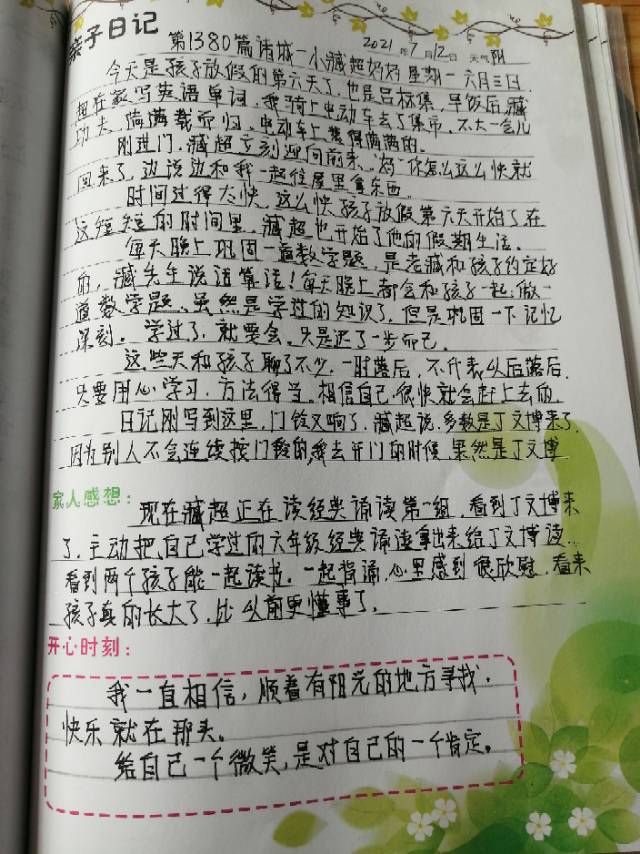 亲子日记
第1380篇诸城一小臧超妈妈 星期一 六月三日
2021年7月12日 天气阴
今天是孩子放假的第六天了,也是吕标集,早饭后,臧
超在家写英语单词,我骑上电动车去了集市,不大一会儿
功夫,满载而归,电动车上
刚进门,臧超立刻迎向前来,"妈"你怎么这么快就
回来了,边说边和我一起往屋里拿东西。
时间过得太快,这么快孩子放假第六天开始了,在
这短短的时间里,臧超也开始了他的假期生活。
每天晚上巩固一道数学题,是老臧和孩子约定好
的,臧先生说话算话!每天晚上都会和孩子一起,做一
道数学题,虽然是学过的知识了,但是巩固一下记忆
深刻。学过了,就要会,只是迟了一步而已。
这些天和孩子聊了不少,一时落后,不代表以后落后,
只要用心学习,方法得当,相信自己,很快就会赶上去的,
日记刚写到这里,门铃又响了,臧超说,多数是丁文博来了,
因为别人不会连续按门铃的,我去开门的时候,果然是丁文博
家人感想:
现在臧超正在读经典诵读第一组,看到丁文博来
了,主动把自己学过的六年级经典诵读拿出来给丁文博读,
看到两个孩子能一起读书,一起背诵,心里感到很欣慰,看来
孩子真的长大了,比以前更懂事了。
开心时刻:
我一直相信,顺着有阳光的地方寻找,
快乐就在那头。
给自己一个微笑,是对自己的一个肯定。